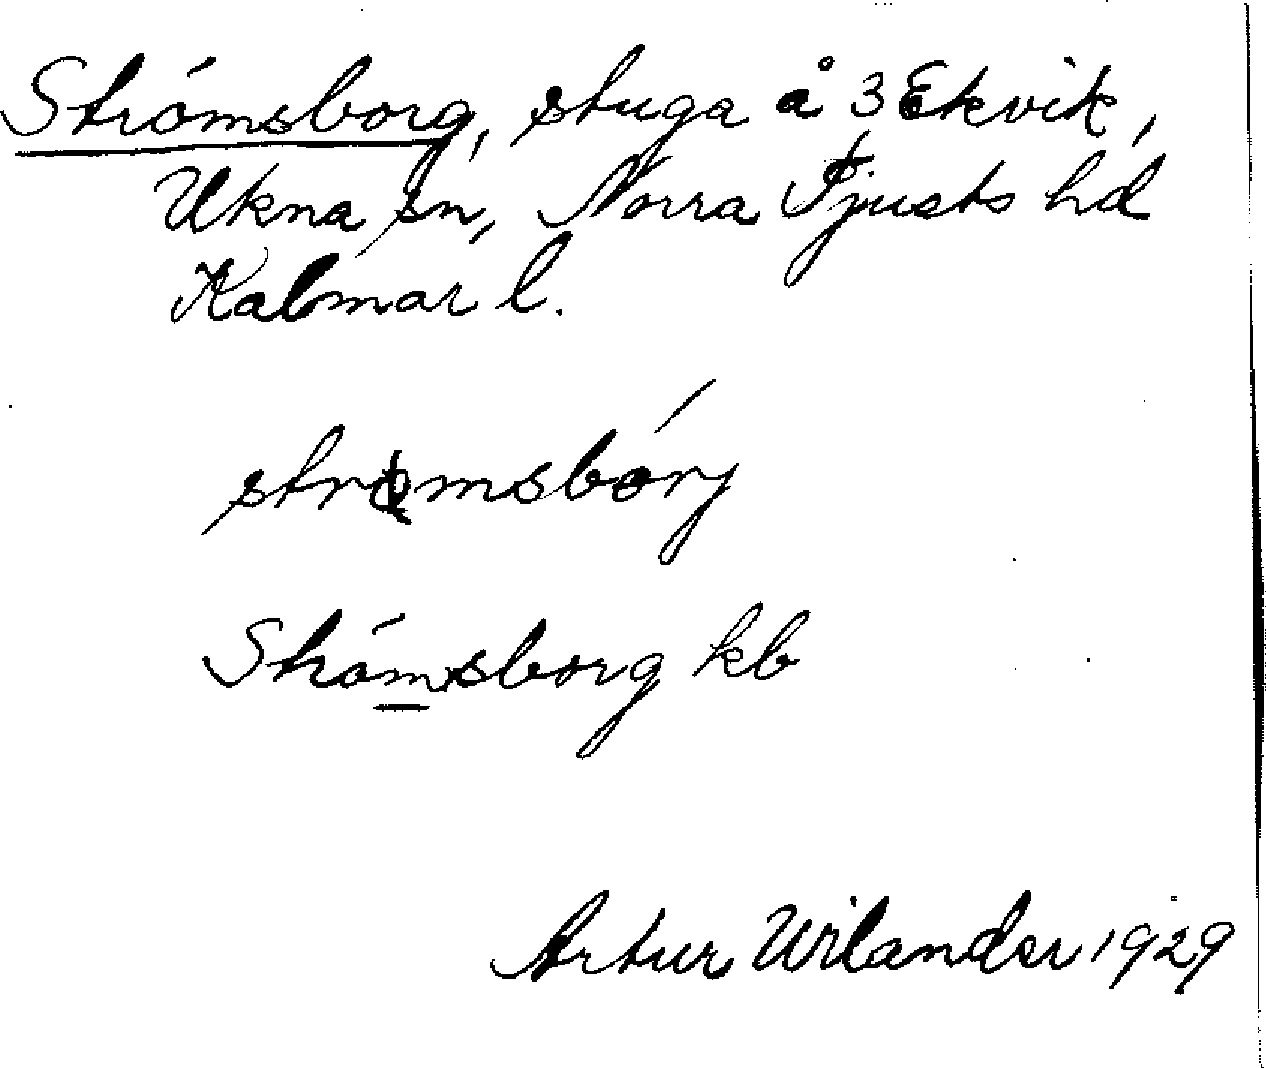 Strömsborg, stuga å 3 Ekvik,
Ukna sn, Norra Tjusts hd
Kalmar l.
Strömsborg kb
Artur Wilander 1929